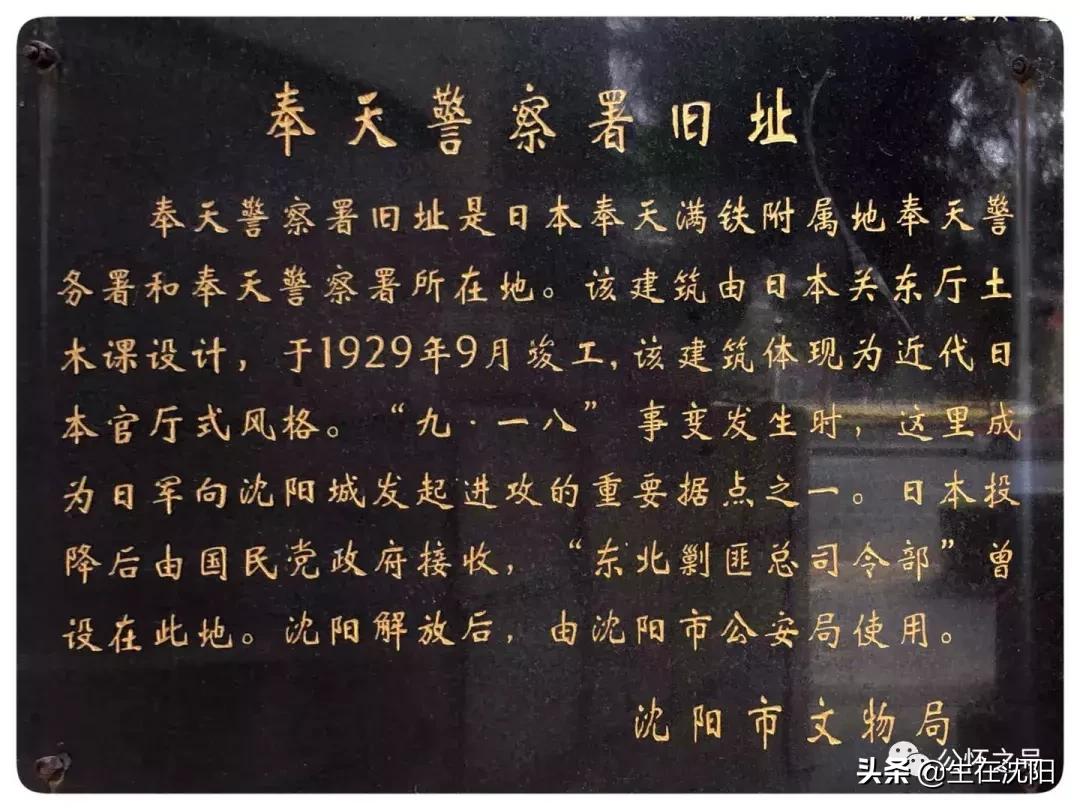 奉天警察署旧址
奉天警察署旧址是日本奉天满铁附属地奉天警
务署和奉天警察署所在地。该建筑由日本关东厅土
木课设计，于1929年9月竣工,该建筑体现为近代日
本官厅式风格。“九·一八”事变发生时，这里成
为日军向沈阳城发起进攻的重要据点之一。日本投
降后由国民党政府接收，“东北剿匪总司令部”曾
设在此地。沈阳解放后，由沈阳市公安局使用。
沈阳市文物局
头条@生在沈阳